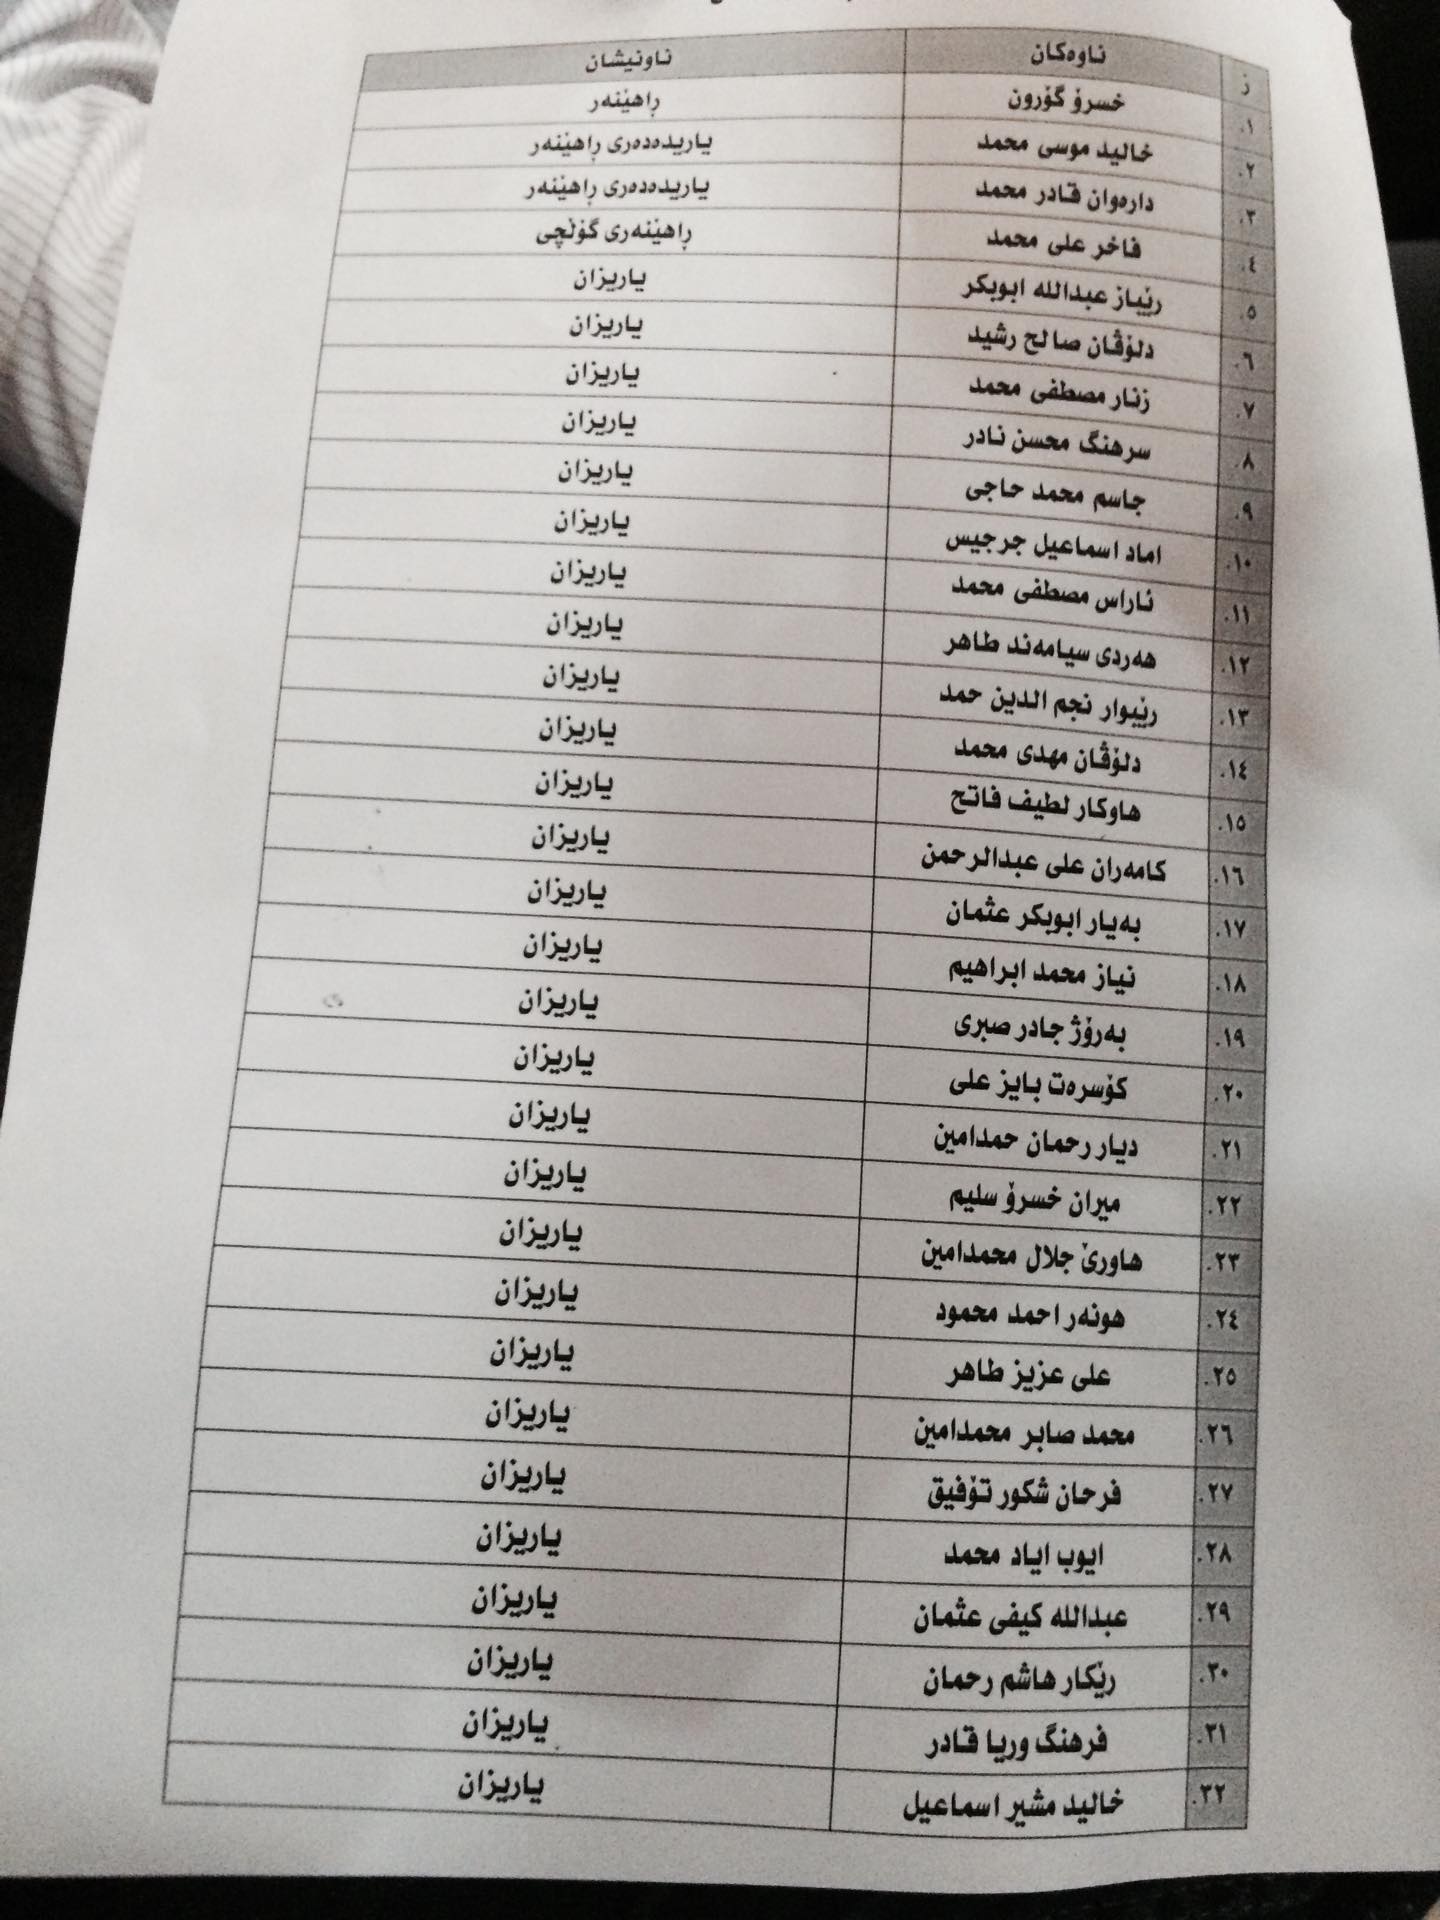 ز ناوەکان ناونیشان
١. خسرۆ گۆرون ڕاهێنەر
٢. خالید موسی محمد یاریدەدەری ڕاهێنەر
٣. دارەوان قادر محمد یاریدەدەری ڕاهێنەر
٤. فاخر علی محمد ڕاهێنەری گۆڵچی
٥. رێباز عبدالله ابوبکر یاریزان
٦. دلۆڤان صالح رشید یاریزان
٧. زنار مصطفی محمد یاریزان
٨. سرهنگ محسن نادر یاریزان
٩. جاسم محمد حاجی یاریزان
١٠. اماد اسماعیل جرجیس یاریزان
١١. ئاراس مصطفی محمد یاریزان
١٢. هەردی سیامەند طاهر یاریزان
١٣. رێبوار نجم الدین حمد یاریزان
١٤. دلۆڤان مهدی محمد یاریزان
١٥. هاوکار لطیف فاتح یاریزان
١٦. کامەران علی عبدالرحمن یاریزان
١٧. بەیار ابوبکر عثمان یاریزان
١٨. نیاز محمد ابراهیم یاریزان
١٩. بەرۆژ جادر صبری یاریزان
٢٠. کۆسرەت بایز علی یاریزان
٢١. دیار رحمان حمدامین یاریزان
٢٢. میران خسرۆ سلیم یاریزان
٢٣. هاورێ جلال محمدامین یاریزان
٢٤. هونەر احمد محمود یاریزان
٢٥. علی عزیز طاهر یاریزان
٢٦. محمد صابر محمدامین یاریزان
٢٧. فرحان شکور تۆفیق یاریزان
٢٨. ایوب ایاد محمد یاریزان
٢٩. عبدالله کیفی عثمان یاریزان
٣٠. رێکار هاشم رحمان یاریزان
٣١. فرهنگ وریا قادر یاریزان
٣٢. خالید مشیر اسماعیل یاریزان